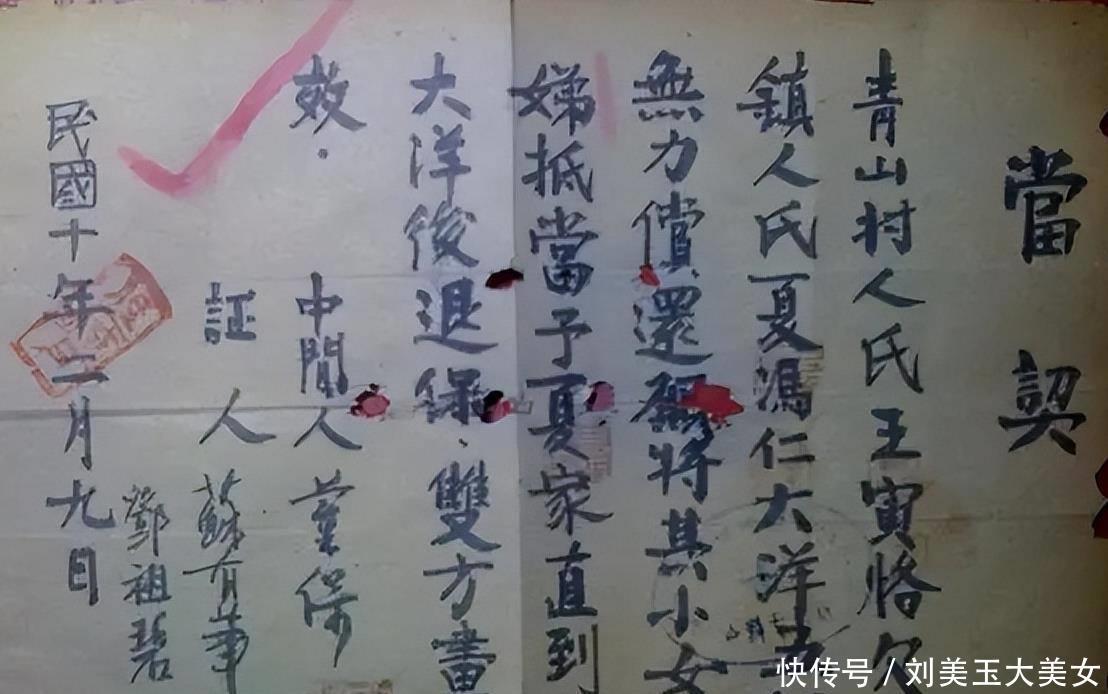 當契
青山村人氏王寅恪欠
鎮人氏夏馮仁大洋
無力償還 將其小女
娣抵當予夏家直到
大洋後退保.雙方畫
效.
中間人 葉保
証人 蘇有華
鄧祖碧
民國十年二月九日
快传号/刘美玉大美女